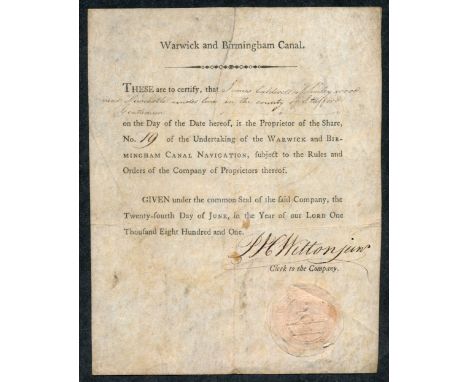 Warwick and Birmingham Canal.
THESE are to certify, that James Caldwell of Linley wood
near Newcastle under line in the county of Stafford
Gentleman
on the Day of the Date hereof, is the Proprietor of the Share,
No. 19 of the Undertaking of the WARWICK and BIR-
MINGHAM CANAL NAVIGATION, subject to the Rules and
Orders of the Company of Proprietors thereof.
GIVEN under the common Seal of the said Company, the
Twenty-fourth Day of JUNE, in the Year of our LORD One
Thousand Eight Hundred and One.
Wilton junr
Clerk to the Company.